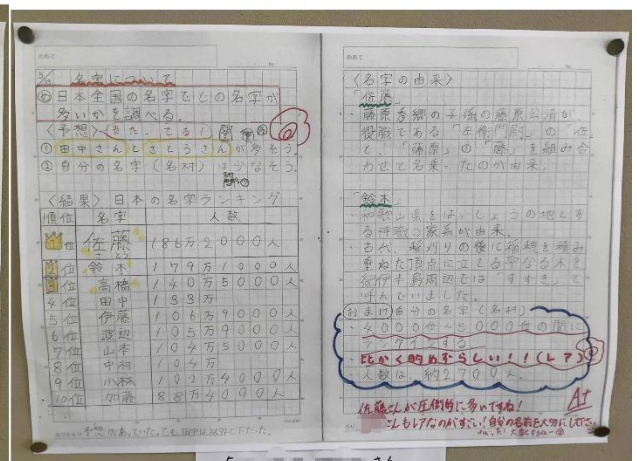 名字について
め 日本全国の名字でどの名字が
多いかを調べる。
〈予想〉 あた、てる!
① 田中さんとさとうさんが多そう。
② 自分の名字(名村)は少なそう。
〈結果〉日本の名字ランキング
順位 名字 人数
1位 佐藤 186万2000人
2位 鈴木 179万1000人
3位 高橋 140万5000人
4位 田中 133万
5位 伊藤 106万9000人
6位 渡辺 105万9000人
7位 山本 104万5000人
8位 中村 104万
9位 小林 102万4000人
10位 加藤 88万4000人
予想があっていた。でも田中は
〈名字の由来〉
「佐藤」
・藤原秀郷の子孫の藤原公清が
役職である「左衛門尉」の「佐」
と、「藤原」の「藤」を組み合
わせて名乗ったのが由来。
「鈴木」
・和歌山県をはっしょうの地とす
る神職の家系が由来。
・古代、稲刈りの後に稲穂を積み
重ねた頂点に立てる
紀伊半島周辺では「すすき」と
呼んでいました。
おまけ 自分の名字(名村)
・4000位~5000位の間に
ランクインする
比かく的めずらしい!!(レア)
・人数は、約2700人。
佐藤さんが圧倒的に多いですね!
さんもレアなのがすごい!自分の名前を大切にして下さい
A+
さん